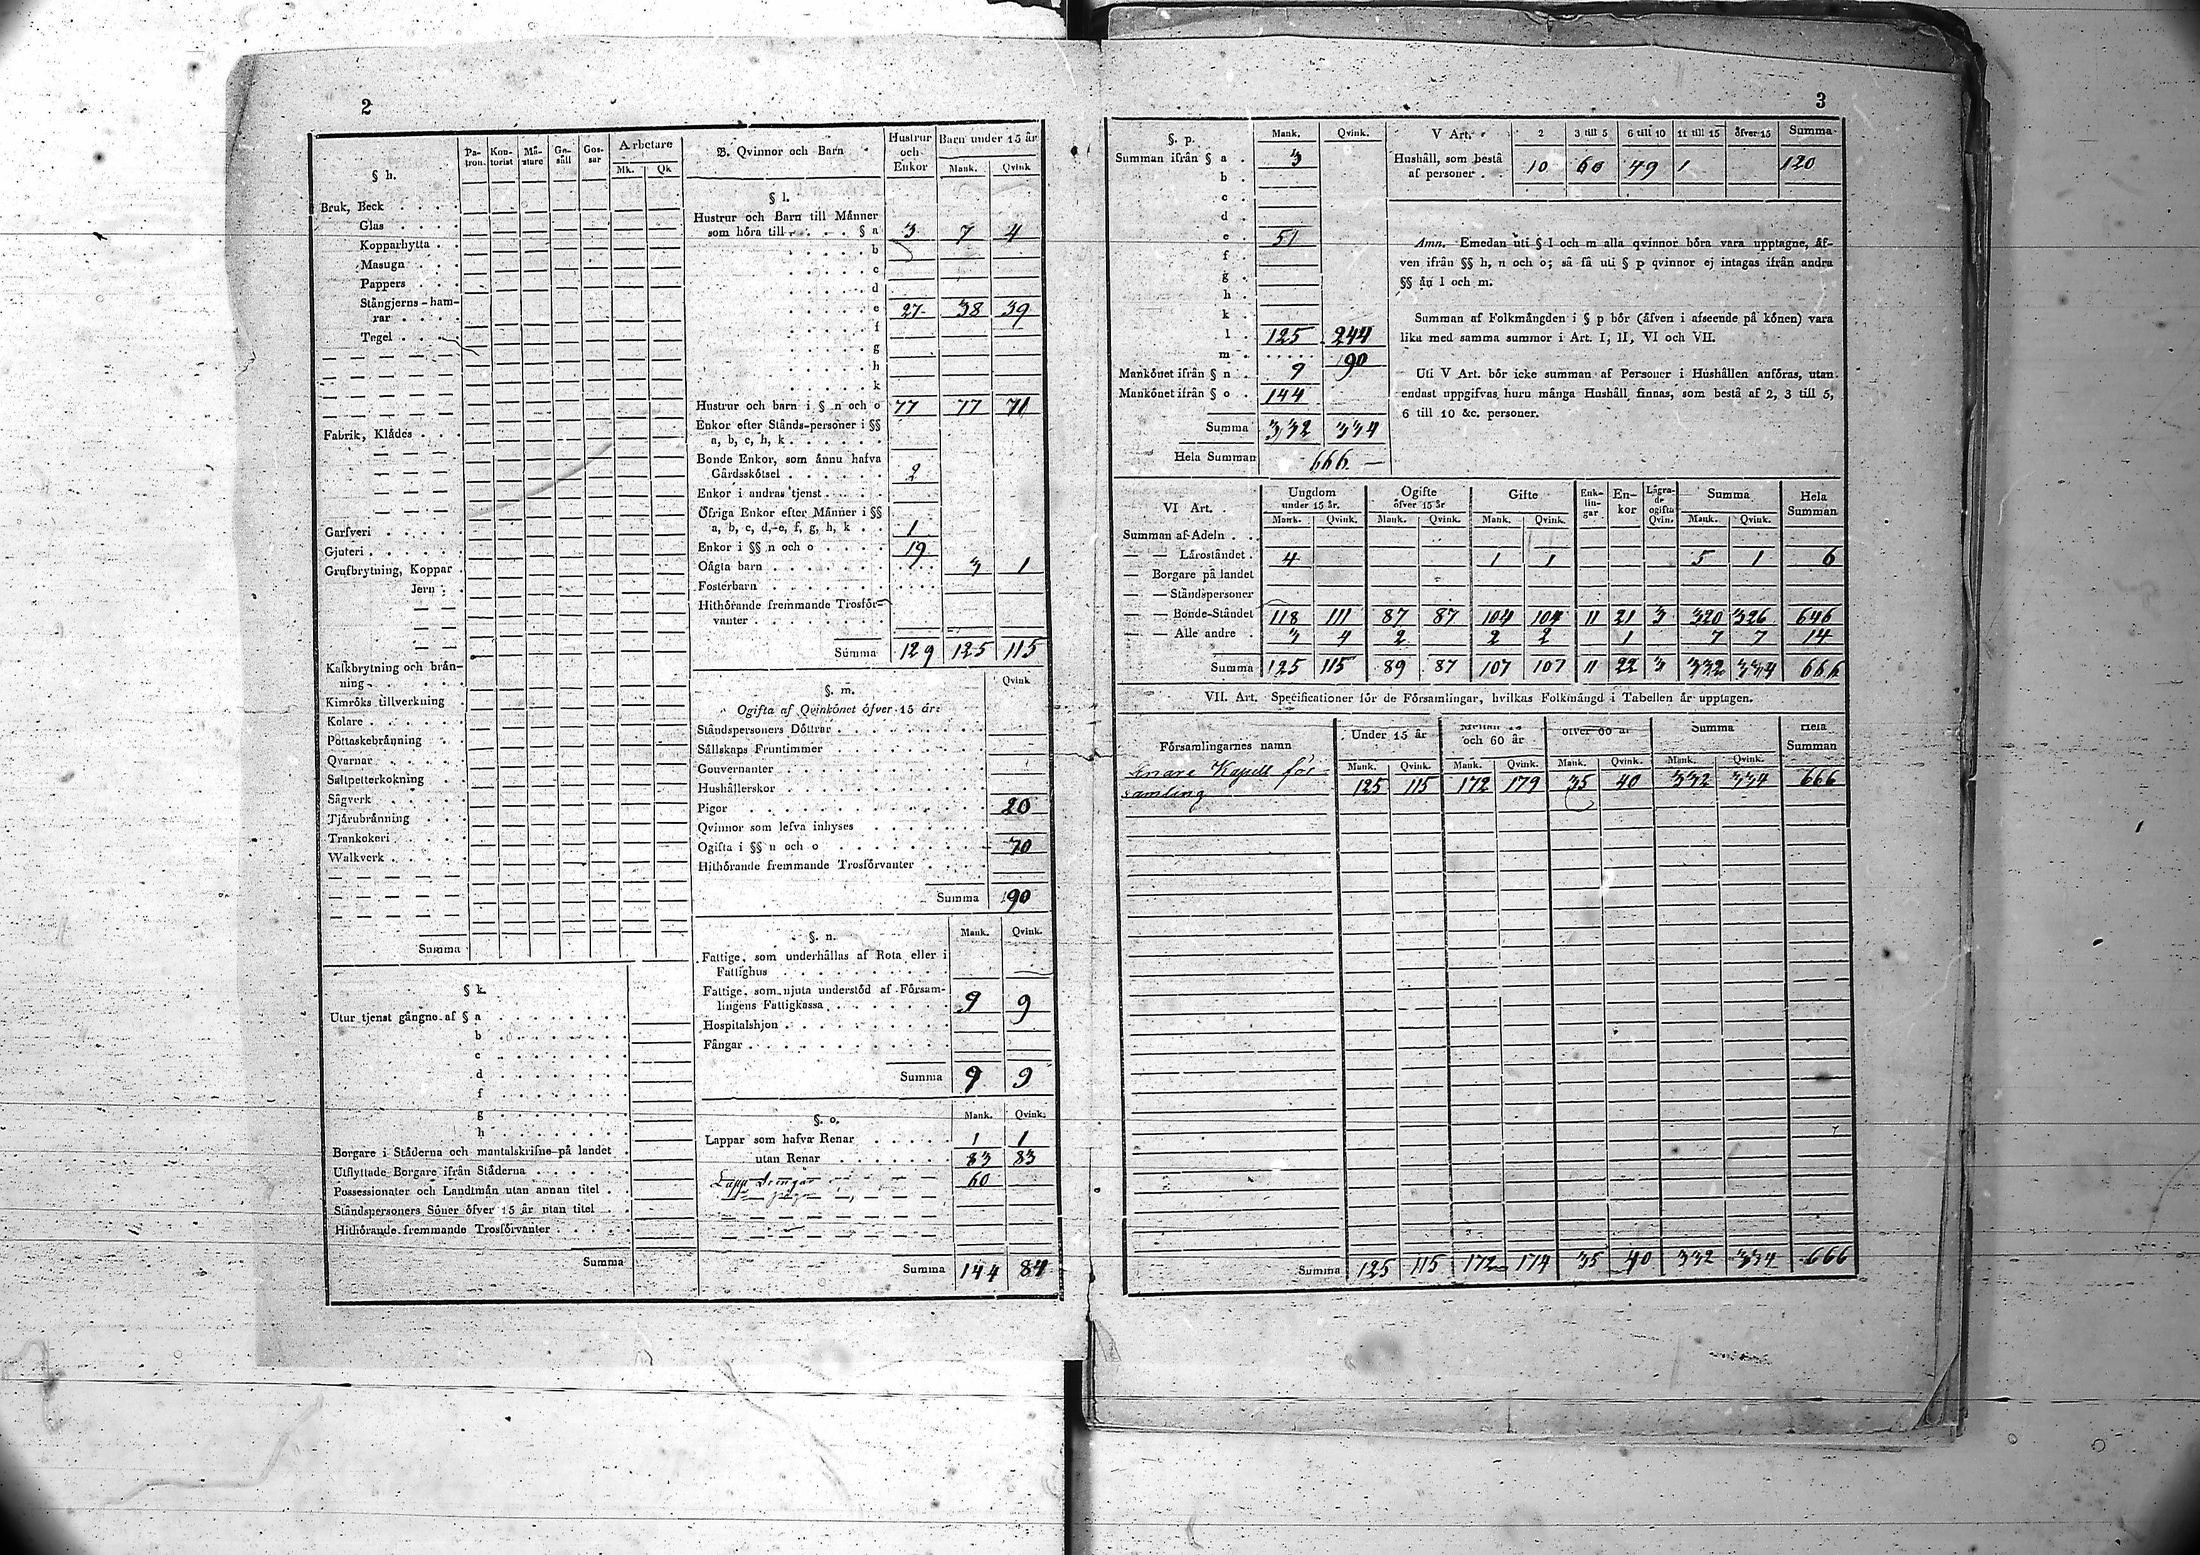 2
§ h.
Pa-
tron.
Kon-
torist
Mä-
stare
Ge-
säll
Gos-
sar
Arbetare
Mk. Qk
Bruk, Beck
Glas
Kopparhytta
Masugn
Pappers
Stångjerns-ham-
rar
Tegel
Fabrik, Klädes
Garfveri
Gjuteri
Grufbrytning, Koppar
Jern
Kalkbrytning och brän-
ning
Kimröks tillverkning
Kolare
Pottaskebränning
Qvarnar
Saltpetterkokning
Sågverk
Tjärubränning
Trankokeri
Walkverk
Summa
§ k.
Utur tjenst gångne af § a
b
c
d
f
g
h
Borgare i Städerna och mantalskrifne på landet
Utflyttade Borgare ifrån Städerna
Possessionater och Landtmän utan annan titel
Ståndspersoners Söner öfver 15 år utan titel
Hithörande fremmande Trosförvanter
Summa
B. Qvinnor och Barn
Hustrur
och
Enkor
Barn under 15 år
Mank. Qvink
§ l.
Hustrur och Barn till Männer
som höra till § a 3 7 4
b
c
d
e 27 38 39
f
g
h
k
Hustrur och barn i § n och o 77 77 71
Enkor efter Stånds-personer i §§
a, b, c, h, k
Bonde Enkor, som ännu hafva
Gårdsskötsel 2
Enkor i andras tjenst
Öfriga Enkor efter Männer i §§
a, b, c, d, e, f, g, h, k 1
Enkor i §§ n och o 19
Oägta barn 3 1
Fosterbarn
Hithörande fremmande Trosför-
vanter
Summa 129 125 115
§. m. Qvink
Ogifta af Qvinkönet öfver 15 år:
Ståndspersoners Döttrar
Sällskaps Fruntimmer
Gouvernanter
Hushållerskor
Pigor 20
Qvinnor som lefva inhyses
Ogifta i §§ n och o 70
Hithörande fremmande Trosförvanter
Summa 90
§. n. Mank. Qvink.
Fattige, som underhållas af Rota eller i
Fattighus
Fattige, som njuta understöd af Försam-
lingens Fattigkassa 9 9
Hospitalshjon
Fångar
Summa 9 9
§. o. Mank. Qvink.
Lappar som hafva Renar 1 1
utan Renar 83 83
Lapp Drengar 60
Summa 144 84
3
§. p. Mank. Qvink.
Summan ifrån § a 3
b
c
d
e 51
f
g
h
k
l 125 244
m 90
Mankönet ifrån § n 9
Mankönet ifrån § o 144
Summa 332 334
Hela Summan 666
V Art. 2 3 till 5 6 till 10 11 till 15 öfver 15 Summa
Hushåll, som bestå
af personer 10 60 49 1 120
Anm. Emedan uti § l och m alla qvinnor böra vara upptagne, äf-
ven ifrån §§ h, n och o; så få uti § p qvinnor ej intagas ifrån andra
§§ än l och m.
Summan af Folkmängden i § p bör (äfven i afseende på könen) vara
lika med samma summor i Art. I, II, VI och VII.
Uti V Art. bör icke summan af Personer i Hushållen anföras, utan
endast uppgifvas huru många Hushåll finnas, som bestå af 2, 3 till 5,
6 till 10 &c. personer.
VI Art.
Ungdom
under 15 år.
Ogifte
öfver 15 år
Gifte
Enk-
lin-
gar
En-
kor
Lägra-
de
ogifta
Qvin.
Summa
Hela
Summan
Mank. Qvink. Mank. Qvink. Mank. Qvink. Mank. Qvink.
Summan af Adeln
— — Läroståndet 4 1 1 5 1 6
— Borgare på landet
— — Ståndspersoner
— — Bonde-Ståndet 118 111 87 87 104 104 11 21 3 320 326 646
— — Alle andre 3 4 2 2 2 1 7 7 14
Summa 125 115 89 87 107 107 11 22 3 332 334 666
VII. Art. Specificationer för de Församlingar, hvilkas Folkmängd i Tabellen är upptagen.
Församlingarnes namn
Under 15 år
och 60 år
öfver 60 år
Summa
Hela
Summan
Mank. Qvink. Mank. Qvink. Mank. Qvink. Mank. Qvink.
Enare Kapells för-
samling 125 115 172 179 35 40 332 334 666
Summa 125 115 172 174 35 40 332 334 666